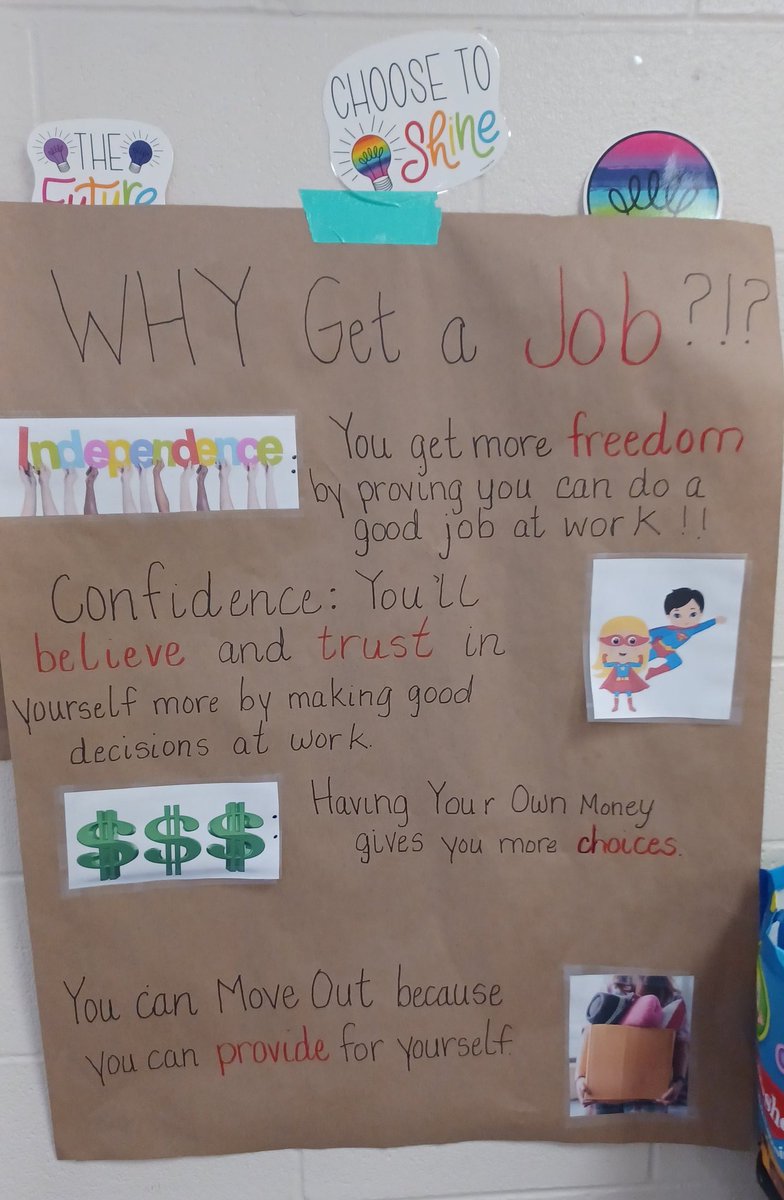 CHOOSE TO
Shine
THE
Future
WHY Get a Job?!?
Independence:
You get more freedom
by proving you can do a
good job at work!!
Confidence: You'll
believe and trust in
yourself more by making good
decisions at work.
$$$:
Having Your Own Money
gives you more choices.
You can Move Out because
you can provide for yourself.